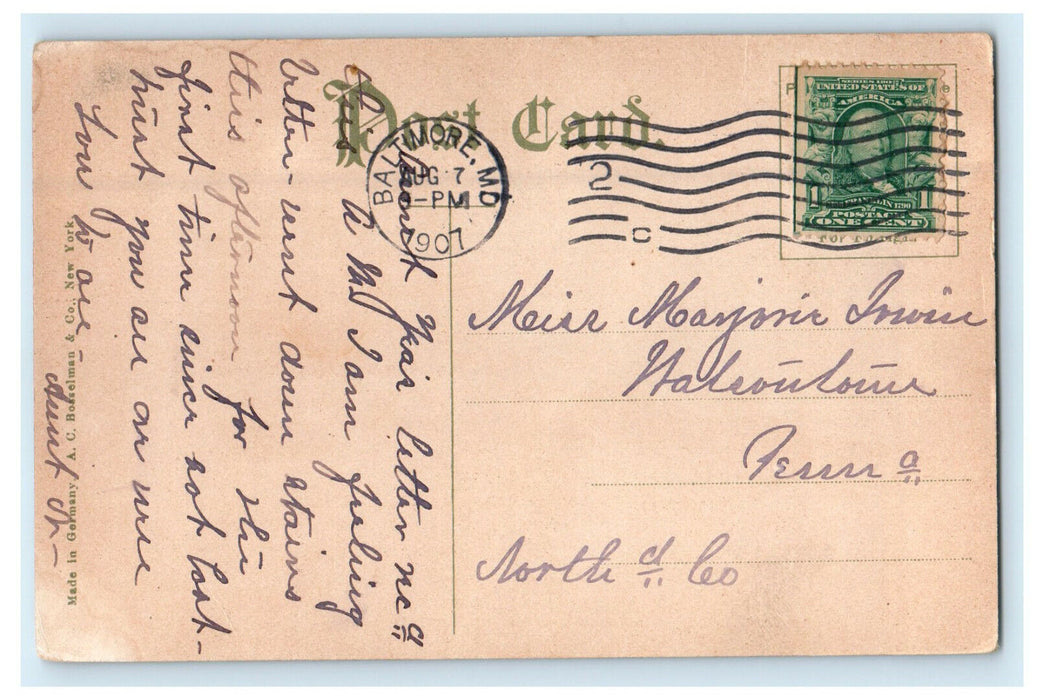 Post Card.
BALTIMORE, MD
AUG 7
-PM
1907
2
C
SERIES 1902
UNITED STATES OF
AMERICA
1 1
FRANKLIN
POSTAGE
ONE CENT
Miss Marjorie Irwin
Watsontown
Penn a
North d Co
Your letter rec d
A M I am feeling
better - went down stairs
this afternoon for the
first time since last -
trust you all are well
Love to all -
Aunt
Made in Germany A. C. Bosselman & Co., New York